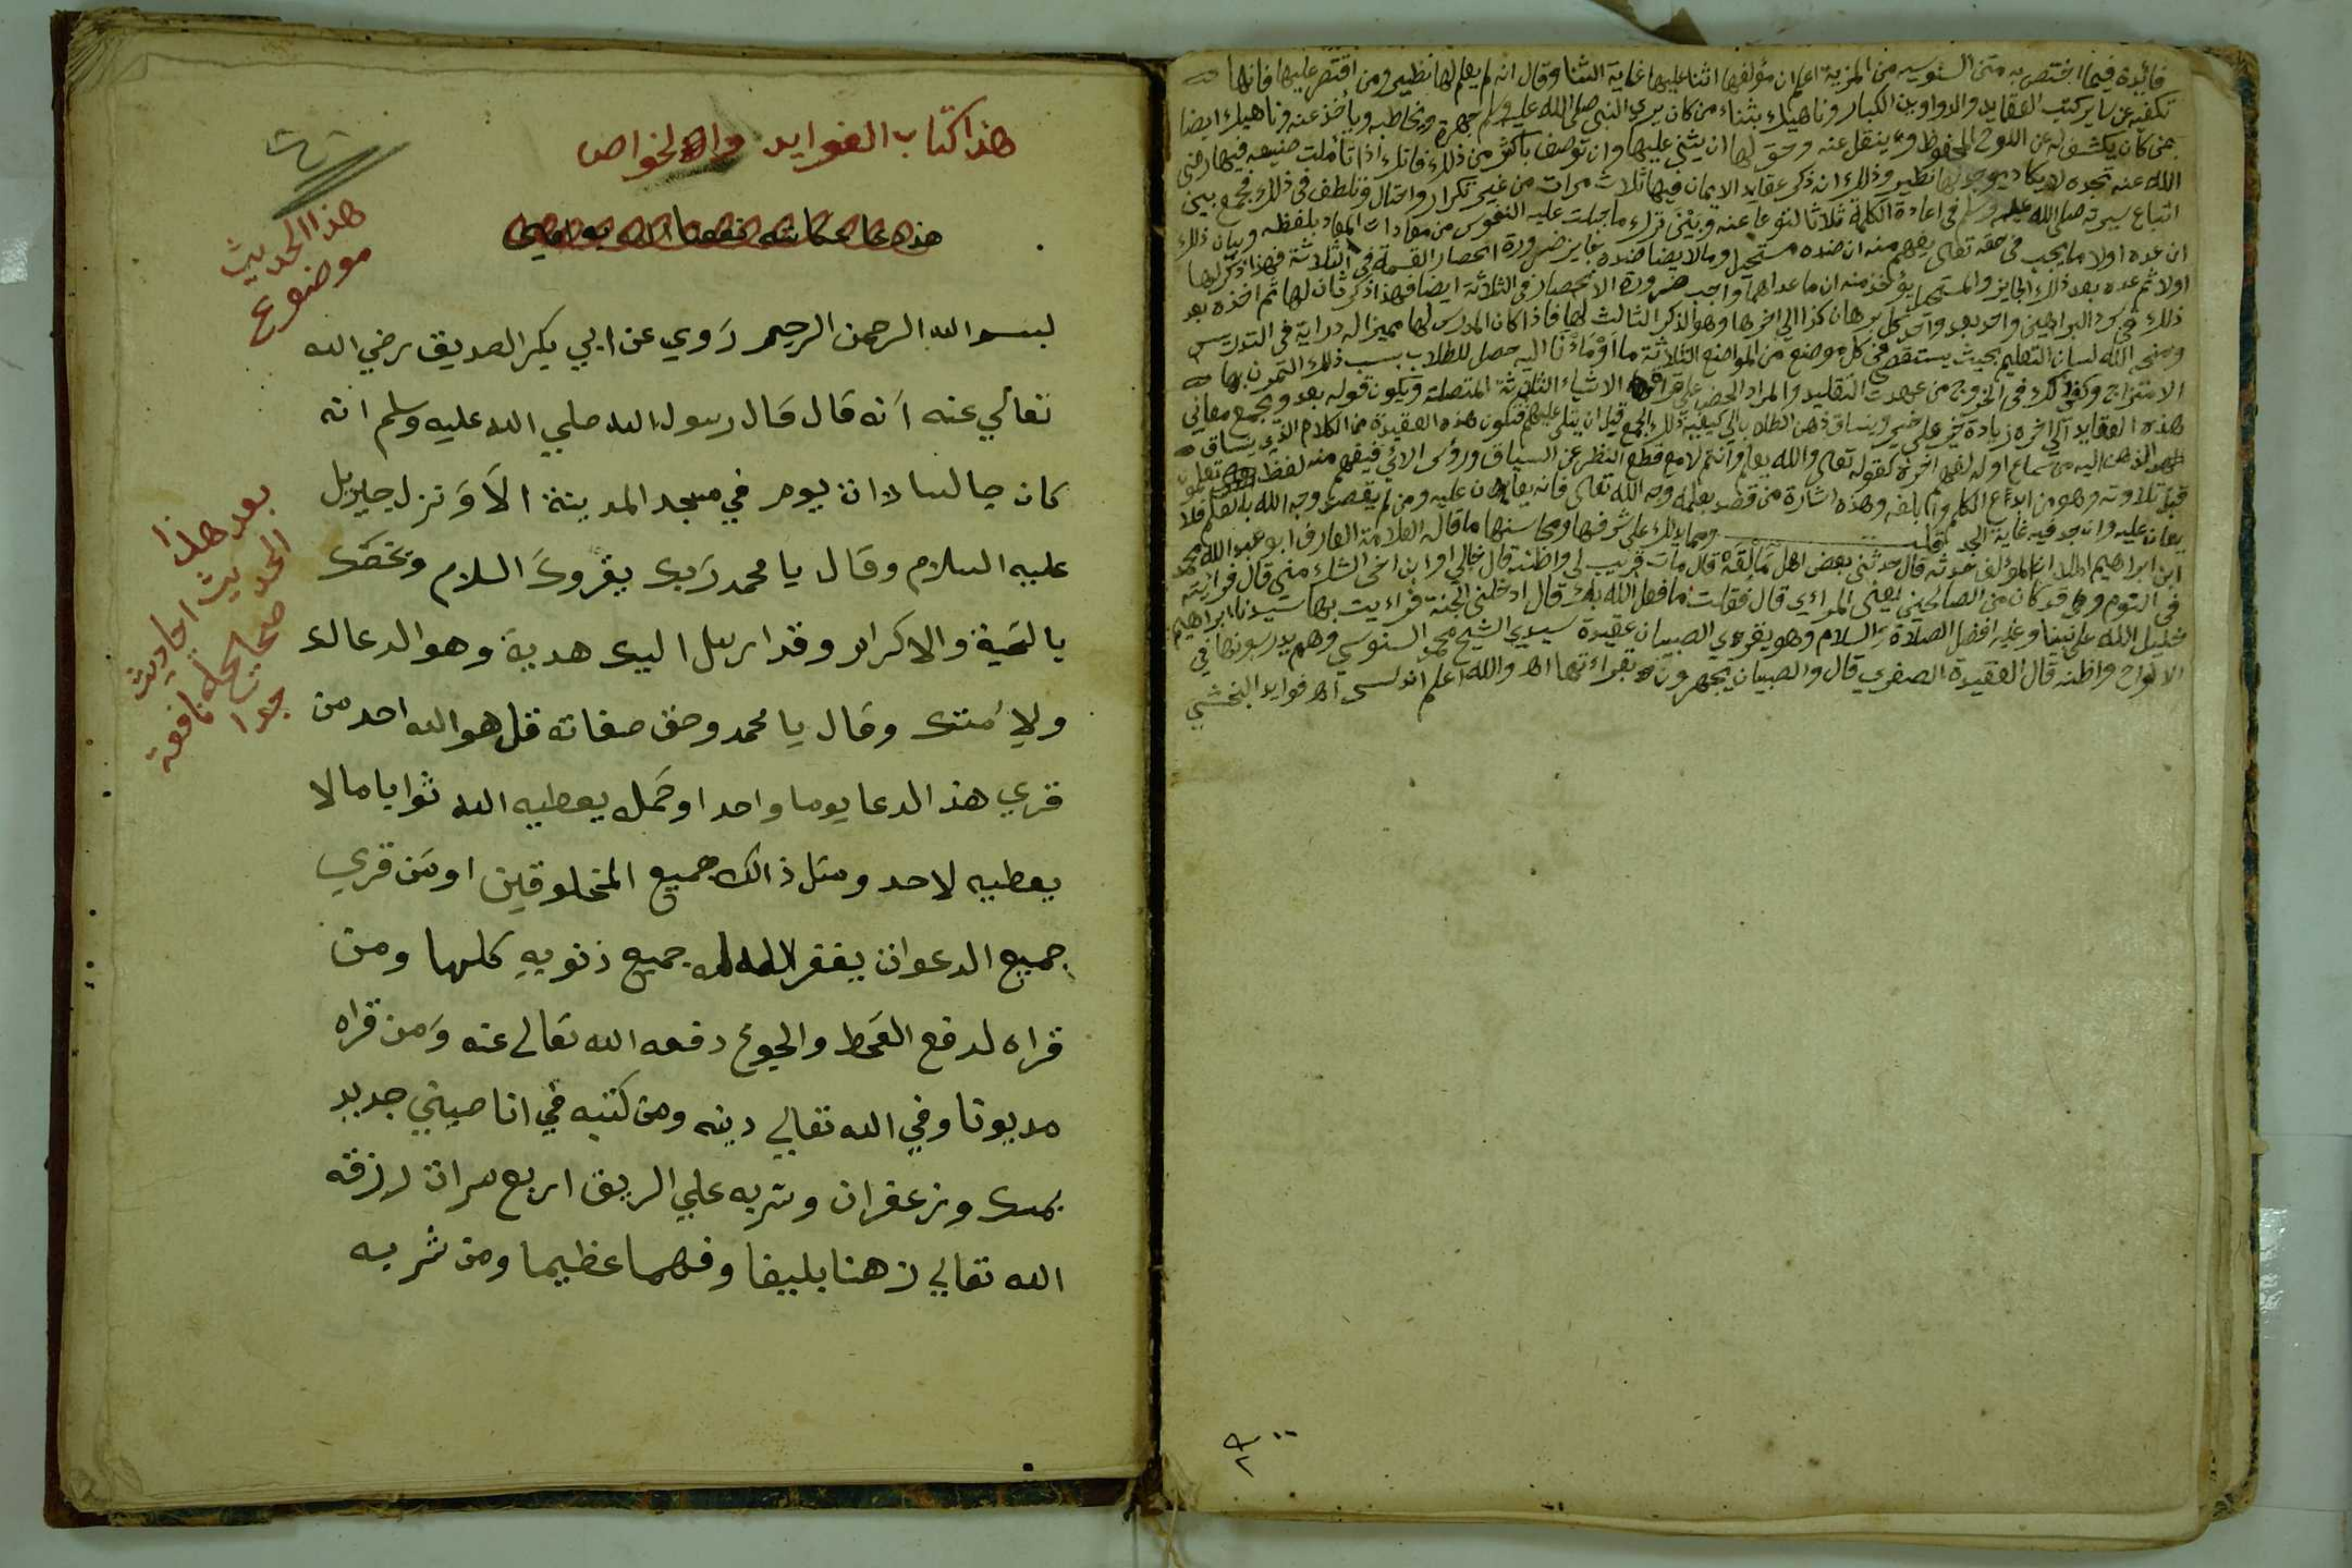 فايدة فيما اختص به متن السنوسيه من المزية اعلم ان مؤلفها اثنا عليها غاية الثنا وقال انه لم يعلم لها نظير ومن اقتصر عليها فانها
تكفيه عن ساير كتب العقايد والدواوين الكبار وناهيك بثناء من كان يري النبي صلى الله عليه وسلم جهرة ويخاطبه ويأخذ عنه وناهيك ايضا
بمن كان يكشف له عن اللوح المحفوظ وينقل عنه وحق لها ان يثني عليها وان توصف باكثر من ذلك فانك اذا تأملت صنيعه فيها رضي
الله عنه تجده لا يكاد يوجد لها نظير وذلك انه ذكر عقايد الايمان فيها ثلاث مرات من غير تكرار واحتال وتلطف في ذلك فجمع بين
اتباع سيرته صلى الله عليه وسلم في اعادة الكلمة ثلاثا لتوعا عنه وبين ترك ما جبلت عليه النفوس من معادات المعاد بلفظه وبيان ذلك
ان عده اولا ما يجب في حقه تعالى يفهم منه ان ضده مستحيل وما لا يضاضده جايز ضرورة انحصار القسمة في الثلاثة فهذا ذكر لها
اولا ثم عده بعد ذلك الجايز والمستحيل يؤخذ منه ان ما عداهما واجب ضرورة الانحصار في الثلاثة ايضا فهذا ذكر ثان لها ثم اخذه بعد
ذلك في سرد البراهين واحد بعد واحد كل برهان كذا الي اخرها وهو الذكر الثالث لها فاذا كان المدرس لها مميزا له دراية في التدريس
ومنحه الله لسان التعليم بحيث يستقصي في كل موضع من المواضع الثلاثة ما أومأنا اليه حصل للطلاب بسبب ذلك التمرن بها
الامتزاج وكفي ذلك في الخروج من عهدت التقليد والمراد الحض على قراءة الاشياء الثلاثة المتصلة ويكون قوله بعد ويجمع معاني
هذه العقايد الي اخره زيادة خير على خير وينساق ذهن الطلاب الي كيفية ذلك الجمع قبل ان يتلى عليهم فتكون هذه العقيدة من الكلام الذي يساق
الذهن اليه من سماع اوله لفهم اخره كقوله تعالى والله يعلم وانتم لا مع قطع النظر عن السياق ورؤس الآي فيفهم منه لفظ تعلمون
قبل تلاوته وهو من ابدع الكلم وابلغه وهذه اشارة من قصد بعلمه وجه الله تعالى فانه يعان عليه ومن لم يقصد وجه الله بالعلم فلا
يعان عليه وان جد فيه غاية الجد ومما يدلك على شرفها ومحاسنها ما قاله العلامة العارف ابو عبد الله محمد
ابن ابراهيم الملالي المؤلف حدثه قال حدثني بعض اهل مالقة قال مات قريب لي واظنه قال خالي او ابن اخي الشك مني قال فرأيته
في النوم وقد كان من الصالحين يعني المرائي قال فقلت ما فعل الله بك قال ادخلني الجنة فرءيت بها سيدنا ابراهيم
خليل الله على نبينا وعليه افضل الصلاة والسلام وهو يقرءي الصبيان عقيدة سيدي الشيخ محمد السنوسي وهم يدرسونها في
الالواح واظنه قال العقيدة الصغري قال والصبيان يجهرون بقراءتها اه والله اعلم اه فوايد
٢٠٠
هذا كتاب الفوايد والخواص
هذا الحديث
موضوع
بعد هذا
الحديث احاديث
صحايح نافعة
جدا
بسم الله الرحمن الرحيم رَوي عن ابي بكر الصديق رضي الله
تعالي عنه أنه قال قال رسول الله صلي الله عليه وسلم انه
كان جالسا ذات يوم في مسجد المدينة الاَّ وَنزل جبريل
عليه السلام وقال يا محمد رَبك يقروك السلام ويخصك
بالتحية والاكرام وقد ارسل اليك هدية وهو الدعا لك
ولأمتك وقال يا محمد وحق صفاته قل هو الله احد من
قري هذ الدعا يوما واحد او حَمله يعطيه الله ثوابا ما لا
يعطيه لاحد ومثل ذالك جميع المخلوقين اومَن قري
جميع الدعوات يغفر الله له جميع ذنوبه كلها ومن
قراه لدفع القحط والجوع دفعه الله تعالى عنه وَمن قراه
مديونا وفي الله تعالي دينه ومن كتبه في انا صيني جديد
بمسك وزعفران وشربه علي الريق اربع مرات رزقه
الله تعالي ذهنا بليغا وفهما عظيما ومن شربه